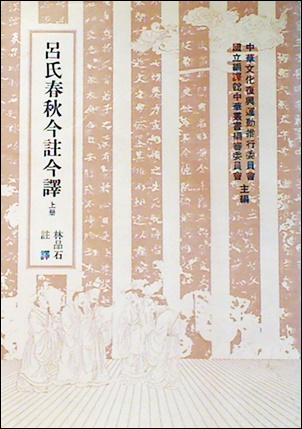 中華文化復興運動推行委員會
國立編譯館中華叢書編審委員會
主編
呂氏春秋今註今譯
上册
林品石
註譯